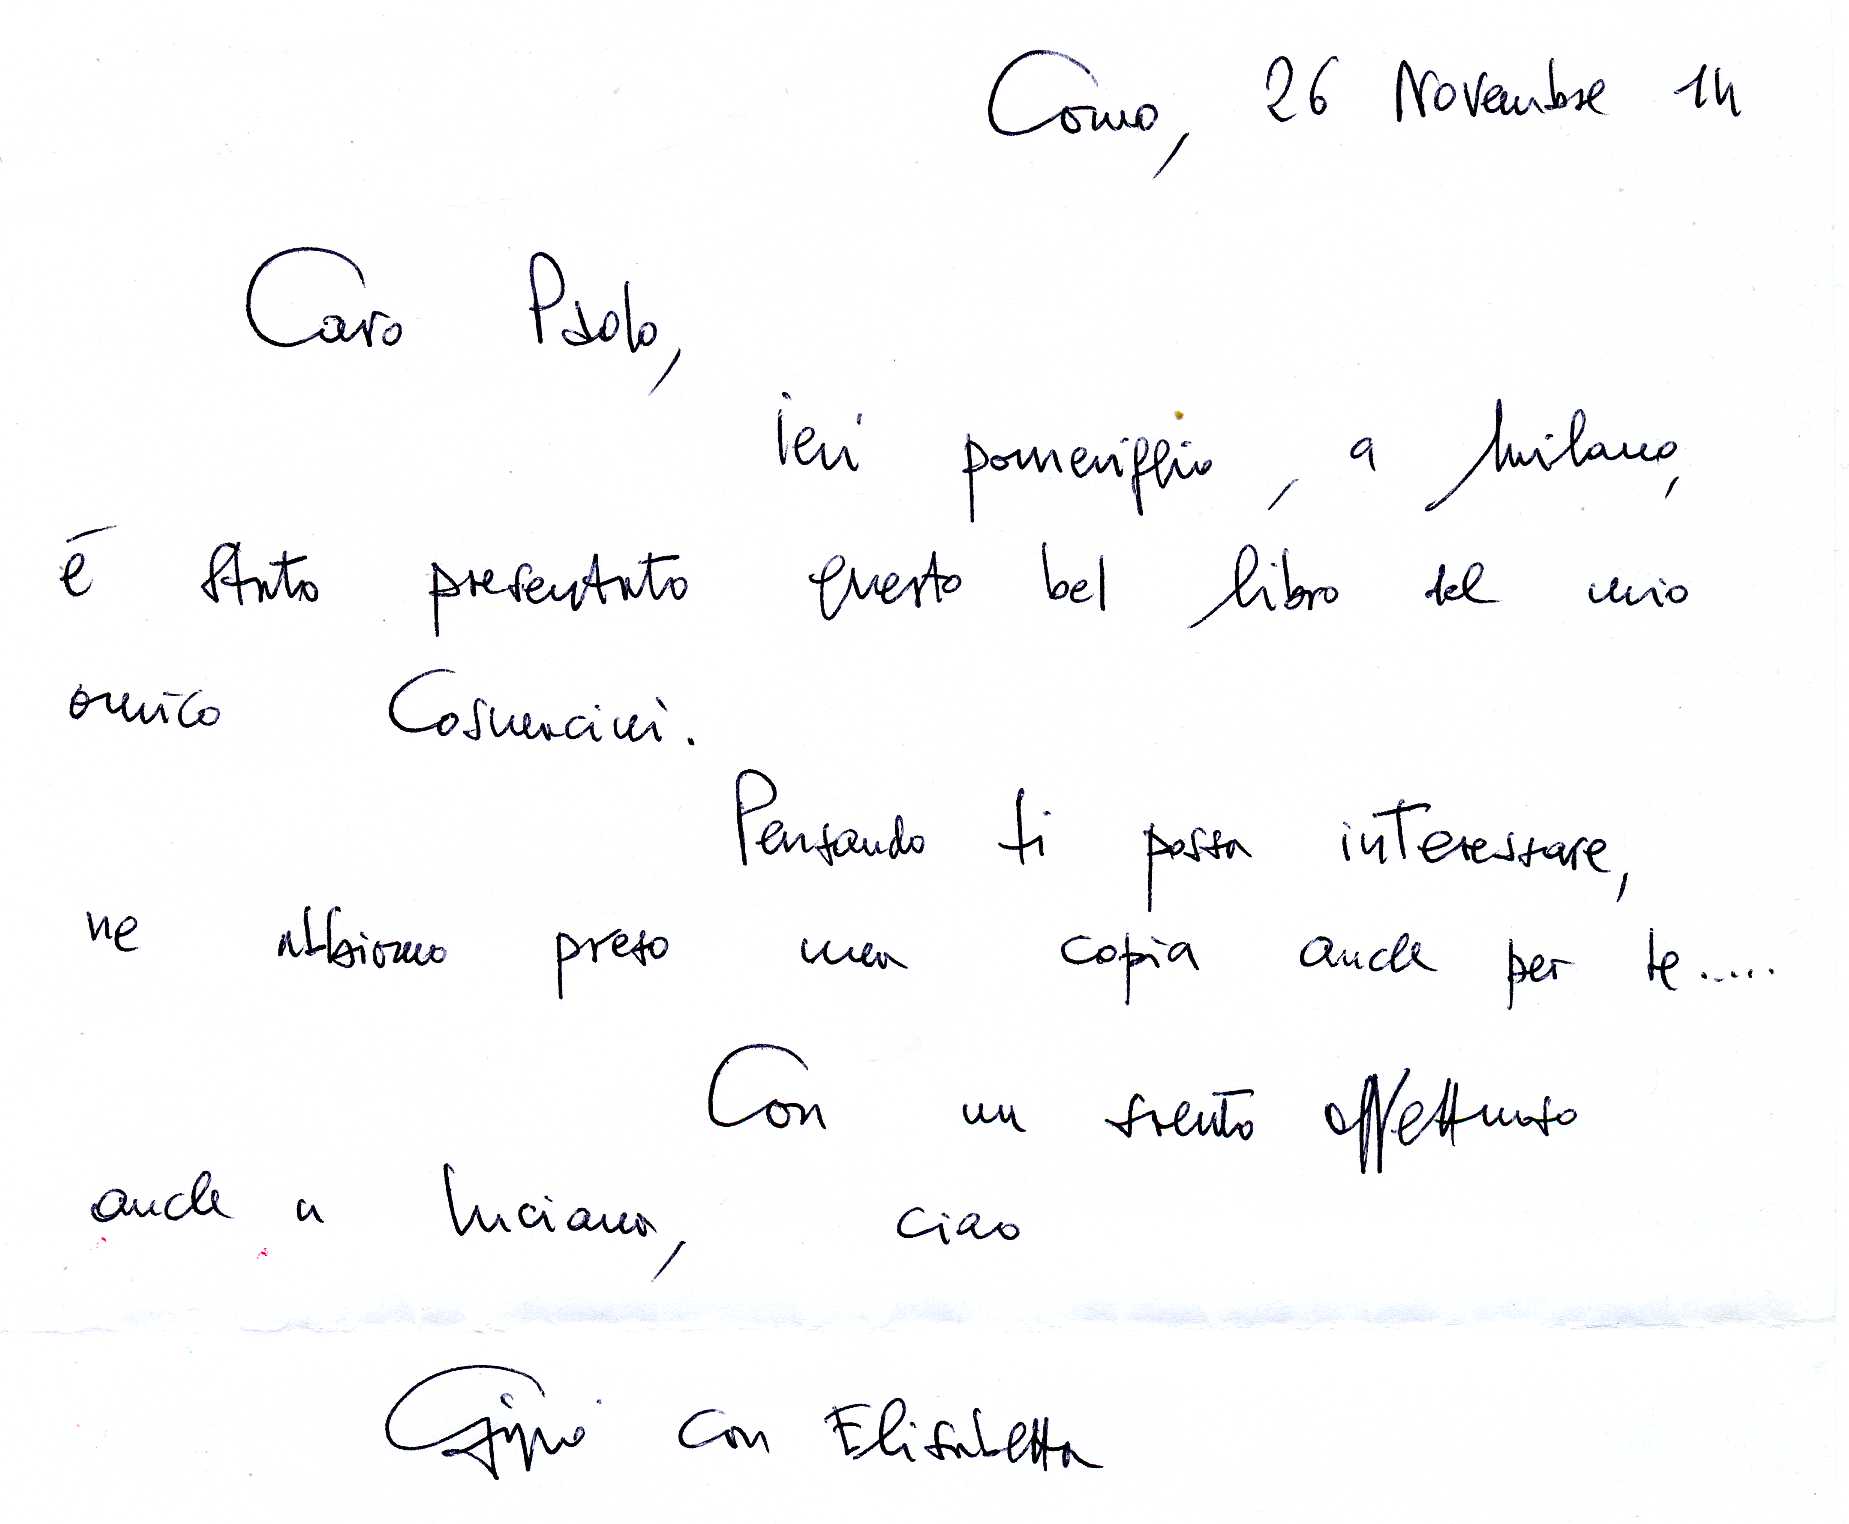 Como, 26 Novembre 14
Caro Paolo,
ieri pomeriggio, a Milano,
è stato presentato questo bel libro del mio
amico Cosmacini.
Pensando ti possa interessare,
ne abbiamo preso una copia anche per te.....
Con un saluto affettuoso
anche a Luciana, ciao
con Elisabetta